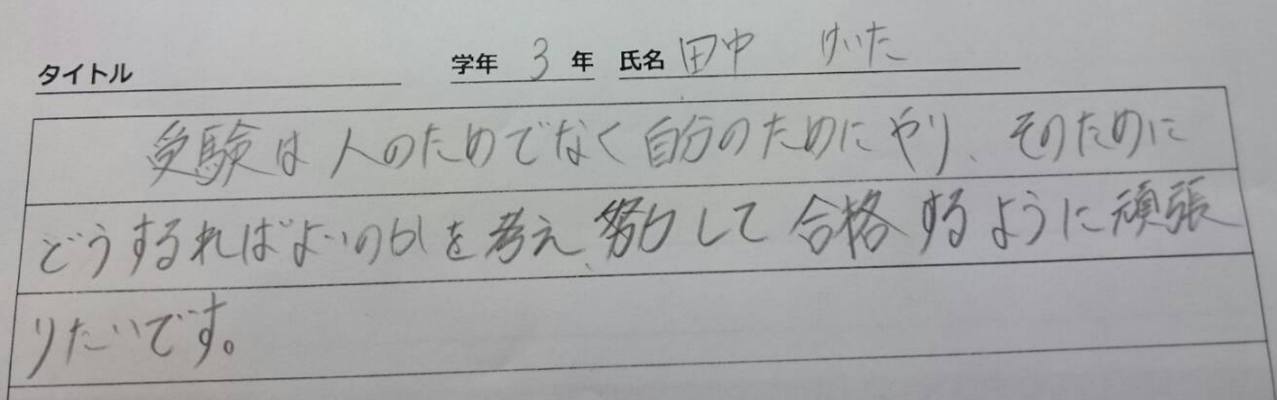 タイトル 学年 3 年 氏名 田中 けいた
受験は人のためでなく自分のためにやり、そのために
どうするればよいのかを考え、努力して合格するように頑張
りたいです。